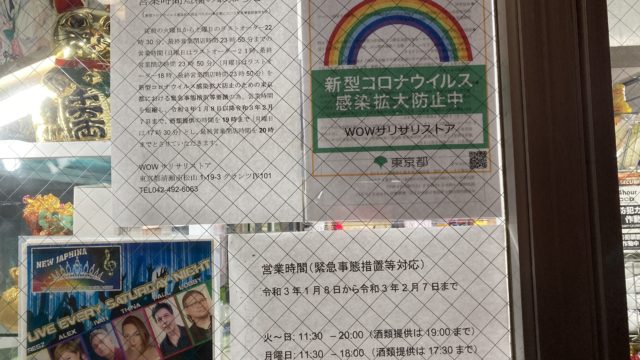 従前の火曜日から土曜日のラストオーダー22
時30分、最終営業閉店時間23時50分までの
営業時間(日曜日はラストオーダー21時、最終
営業閉店時間23時50分)(月曜日はラストオ
ーダー18時、最終営業閉店時間23時50分)を
新型コロナウイルス感染拡大防止のための東京
都における緊急事態措置等要請の為、営業時間
を短縮し、令和3年1月8日以降令和3年2月
7日まで、酒類提供の時間を19時まで(月曜日
は17時30分)とし、最終営業閉店時間を20時
までとさせていただきます。
WOW サリサリストア
東京都清瀬市松山 1-19-3 グランツⅣ101
TEL042-492-6063
新型コロナウイルス
感染拡大防止中
WOWサリサリストア
東京都
NEW JAPHINA
LIVE EVERY SATURDAY NIGHT
REGZ
ALEX
RAY
THINA
BOBBY
営業時間(緊急事態措置等対応)
令和3年1月8日から令和3年2月7日まで
火~日: 11:30 –20:00(酒類提供は 19:00まで)
月曜日: 11:30 –18:00(酒類提供は 17:30まで)